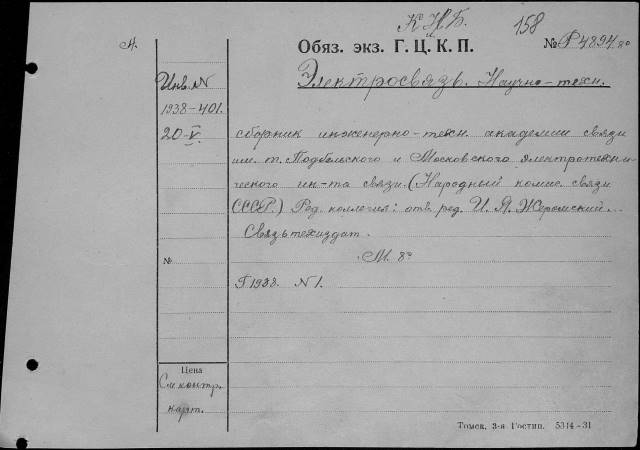 К.Н.Б. 158
А. Обяз. экз. Г. Ц. К. П. № Р4894 80
Электросвязь. Научно-техн.
Инв. N
1938-401.
20-V.
сборник инженерно-техн. академии связи
им. т. Подбельского и Московского электротехни-
ческого ин-та связи. (Народный комис. связи
СССР.) Ред. коллегия: отв. ред. И. Я. Жеромский...
Связьтехиздат.
М. 8°
№
Г 1938. N 1.
Цена
См. контр.
карт.
Томск, 3-я Гостип. 5314-31